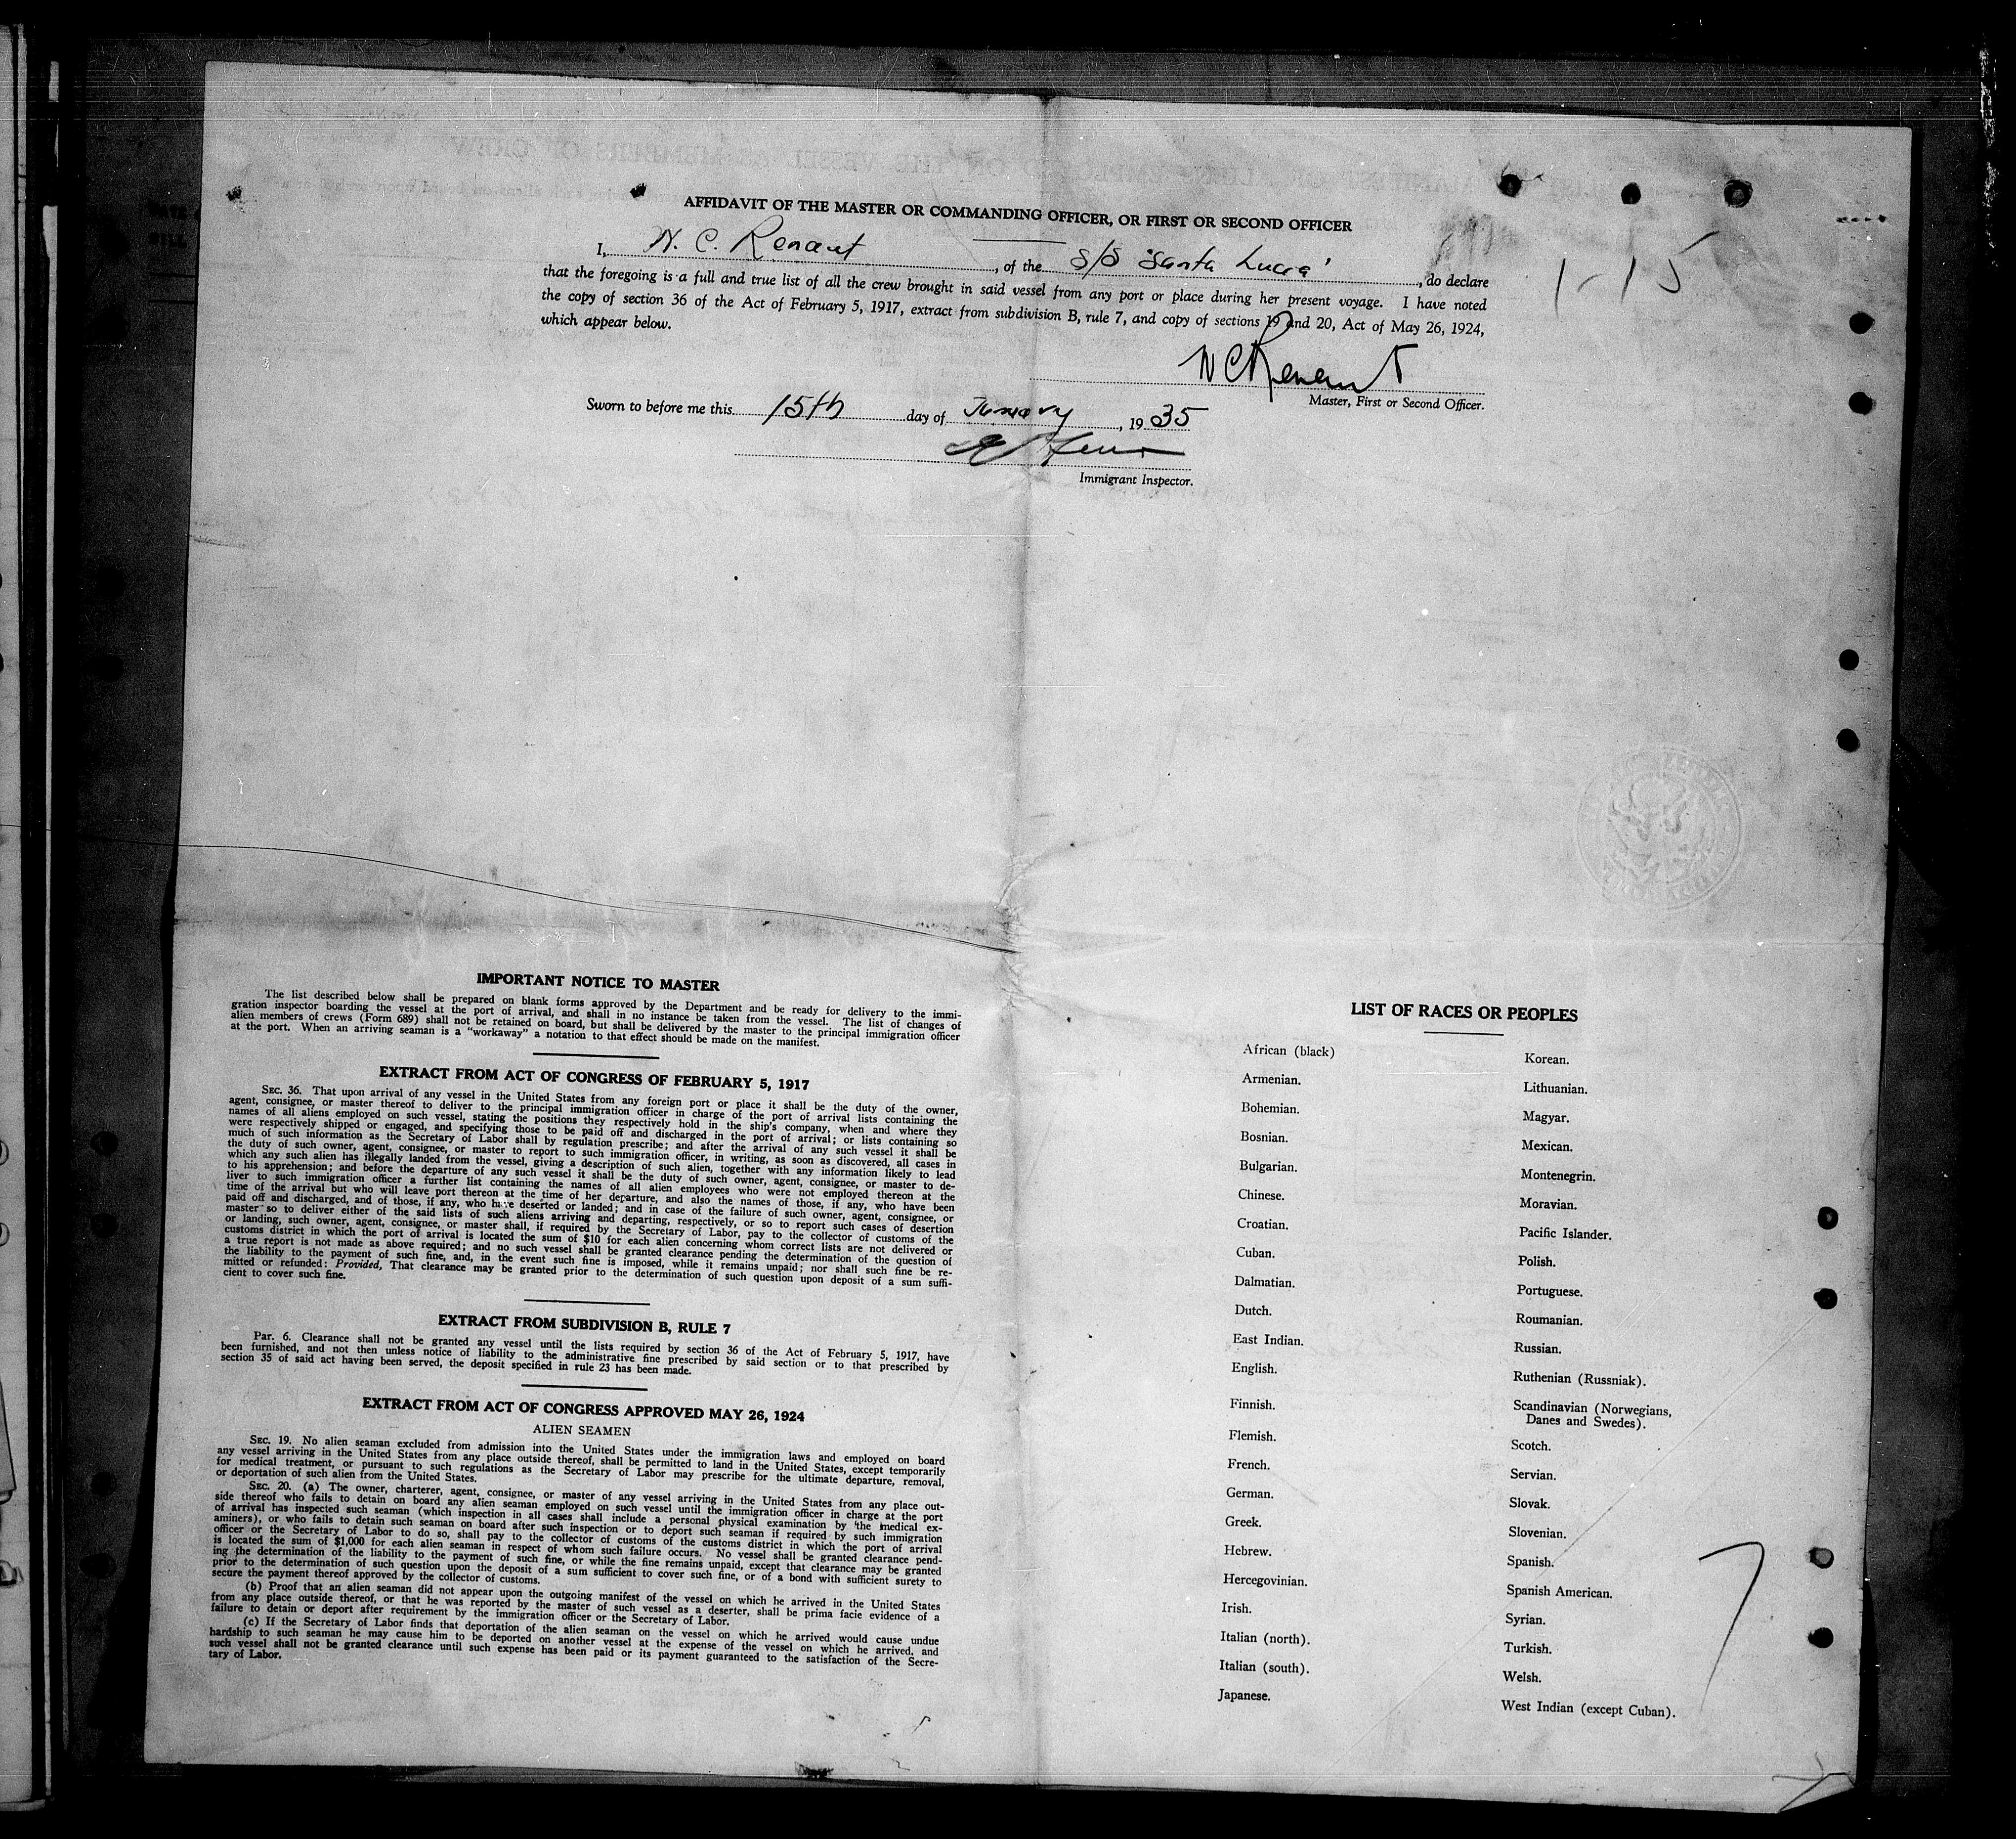 AFFIDAVIT OF THE MASTER OR COMMANDING OFFICER, OR FIRST OR SECOND OFFICER
I, N. C. Renaut, of the S/S "Santa Lucia", do declare
that the foregoing is a full and true list of all the crew brought in said vessel from any port or place during her present voyage. I have noted
the copy of section 36 of the Act of February 5, 1917, extract from subdivision B, rule 7, and copy of sections 19 and 20, Act of May 26, 1924,
which appear below.
1-15
N C Renaut
Master, First or Second Officer.
Sworn to before me this 15th day of January, 1935
Immigrant Inspector.
IMPORTANT NOTICE TO MASTER
The list described below shall be prepared on blank forms approved by the Department and be ready for delivery to the immi-
gration inspector boarding the vessel at the port of arrival, and shall in no instance be taken from the vessel. The list of changes of
alien members of crews (Form 689) shall not be retained on board, but shall be delivered by the master to the principal immigration officer
at the port. When an arriving seaman is a "workaway" a notation to that effect should be made on the manifest.
EXTRACT FROM ACT OF CONGRESS OF FEBRUARY 5, 1917
SEC. 36. That upon arrival of any vessel in the United States from any foreign port or place it shall be the duty of the owner,
agent, consignee, or master thereof to deliver to the principal immigration officer in charge of the port of arrival lists containing the
names of all aliens employed on such vessel, stating the positions they respectively hold in the ship's company, when and where they
were respectively shipped or engaged, and specifying those to be paid off and discharged in the port of arrival; or lists containing so
much of such information as the Secretary of Labor shall by regulation prescribe; and after the arrival of any such vessel it shall be
the duty of such owner, agent, consignee, or master to report to such immigration officer, in writing, as soon as discovered, all cases in
which any such alien has illegally landed from the vessel, giving a description of such alien, together with any information likely to lead
to his apprehension; and before the departure of any such vessel it shall be the duty of such owner, agent, consignee, or master to de-
liver to such immigration officer a further list containing the names of all alien employees who were not employed thereon at the
time of the arrival but who will leave port thereon at the time of her departure, and also the names of those, if any, who have been
paid off and discharged, and of those, if any, who have deserted or landed; and in case of the failure of such owner, agent, consignee, or
master so to deliver either of the said lists of such aliens arriving and departing, respectively, or so to report such cases of desertion
or landing, such owner, agent, consignee, or master shall, if required by the Secretary of Labor, pay to the collector of customs of the
customs district in which the port of arrival is located the sum of $10 for each alien concerning whom correct lists are not delivered or
a true report is not made as above required; and no such vessel shall be granted clearance pending the determination of the question of
the liability to the payment of such fine, and, in the event such fine is imposed, while it remains unpaid; nor shall such fine be re-
mitted or refunded: Provided, That clearance may be granted prior to the determination of such question upon deposit of a sum suffi-
cient to cover such fine.
EXTRACT FROM SUBDIVISION B, RULE 7
Par. 6. Clearance shall not be granted any vessel until the lists required by section 36 of the Act of February 5, 1917, have
been furnished, and not then unless notice of liability to the administrative fine prescribed by said section or to that prescribed by
section 35 of said act having been served, the deposit specified in rule 23 has been made.
EXTRACT FROM ACT OF CONGRESS APPROVED MAY 26, 1924
ALIEN SEAMEN
SEC. 19. No alien seaman excluded from admission into the United States under the immigration laws and employed on board
any vessel arriving in the United States from any place outside thereof, shall be permitted to land in the United States, except temporarily
for medical treatment, or pursuant to such regulations as the Secretary of Labor may prescribe for the ultimate departure, removal,
or deportation of such alien from the United States.
SEC. 20. (a) The owner, charterer, agent, consignee, or master of any vessel arriving in the United States from any place out-
side thereof who fails to detain on board any alien seaman employed on such vessel until the immigration officer in charge at the port
of arrival has inspected such seaman (which inspection in all cases shall include a personal physical examination by the medical ex-
aminers), or who fails to detain such seaman on board after such inspection or to deport such seaman if required by such immigration
officer or the Secretary of Labor to do so, shall pay to the collector of customs of the customs district in which the port of arrival
is located the sum of $1,000 for each alien seaman in respect of whom such failure occurs. No vessel shall be granted clearance pend-
ing the determination of the liability to the payment of such fine, or while the fine remains unpaid, except that clearance may be granted
prior to the determination of such question upon the deposit of a sum sufficient to cover such fine, or of a bond with sufficient surety to
secure the payment thereof approved by the collector of customs.
(b) Proof that an alien seaman did not appear upon the outgoing manifest of the vessel on which he arrived in the United States
from any place outside thereof, or that he was reported by the master of such vessel as a deserter, shall be prima facie evidence of a
failure to detain or deport after requirement by the immigration officer or the Secretary of Labor.
(c) If the Secretary of Labor finds that deportation of the alien seaman on the vessel on which he arrived would cause undue
hardship to such seaman he may cause him to be deported on another vessel at the expense of the vessel on which he arrived, and
such vessel shall not be granted clearance until such expense has been paid or its payment guaranteed to the satisfaction of the Secre-
tary of Labor.
LIST OF RACES OR PEOPLES
African (black)
Armenian.
Bohemian.
Bosnian.
Bulgarian.
Chinese.
Croatian.
Cuban.
Dalmatian.
Dutch.
East Indian.
English.
Finnish.
Flemish.
French.
German.
Greek.
Hebrew.
Hercegovinian.
Irish.
Italian (north).
Italian (south).
Japanese.
Korean.
Lithuanian.
Magyar.
Mexican.
Montenegrin.
Moravian.
Pacific Islander.
Polish.
Portuguese.
Roumanian.
Russian.
Ruthenian (Russniak).
Scandinavian (Norwegians,
Danes and Swedes).
Scotch.
Servian.
Slovak.
Slovenian.
Spanish.
Spanish American.
Syrian.
Turkish.
Welsh.
West Indian (except Cuban).
7